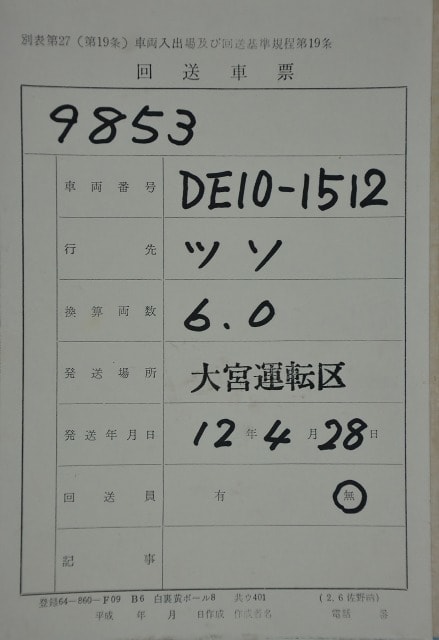 別表第27（第19条）車両入出場及び回送基準規程第19条
回送車票
9853
車両番号 DE10-1512
行先 ツソ
換算両数 6.0
発送場所 大宮運転区
発送年月日 12年4月28日
回送員 有 無
記事
登録64-860-F09 B6 白裏黄ボール8 共ウ401 (2.6佐野納)
平成 年 月 日作成 作成者名 電話 番